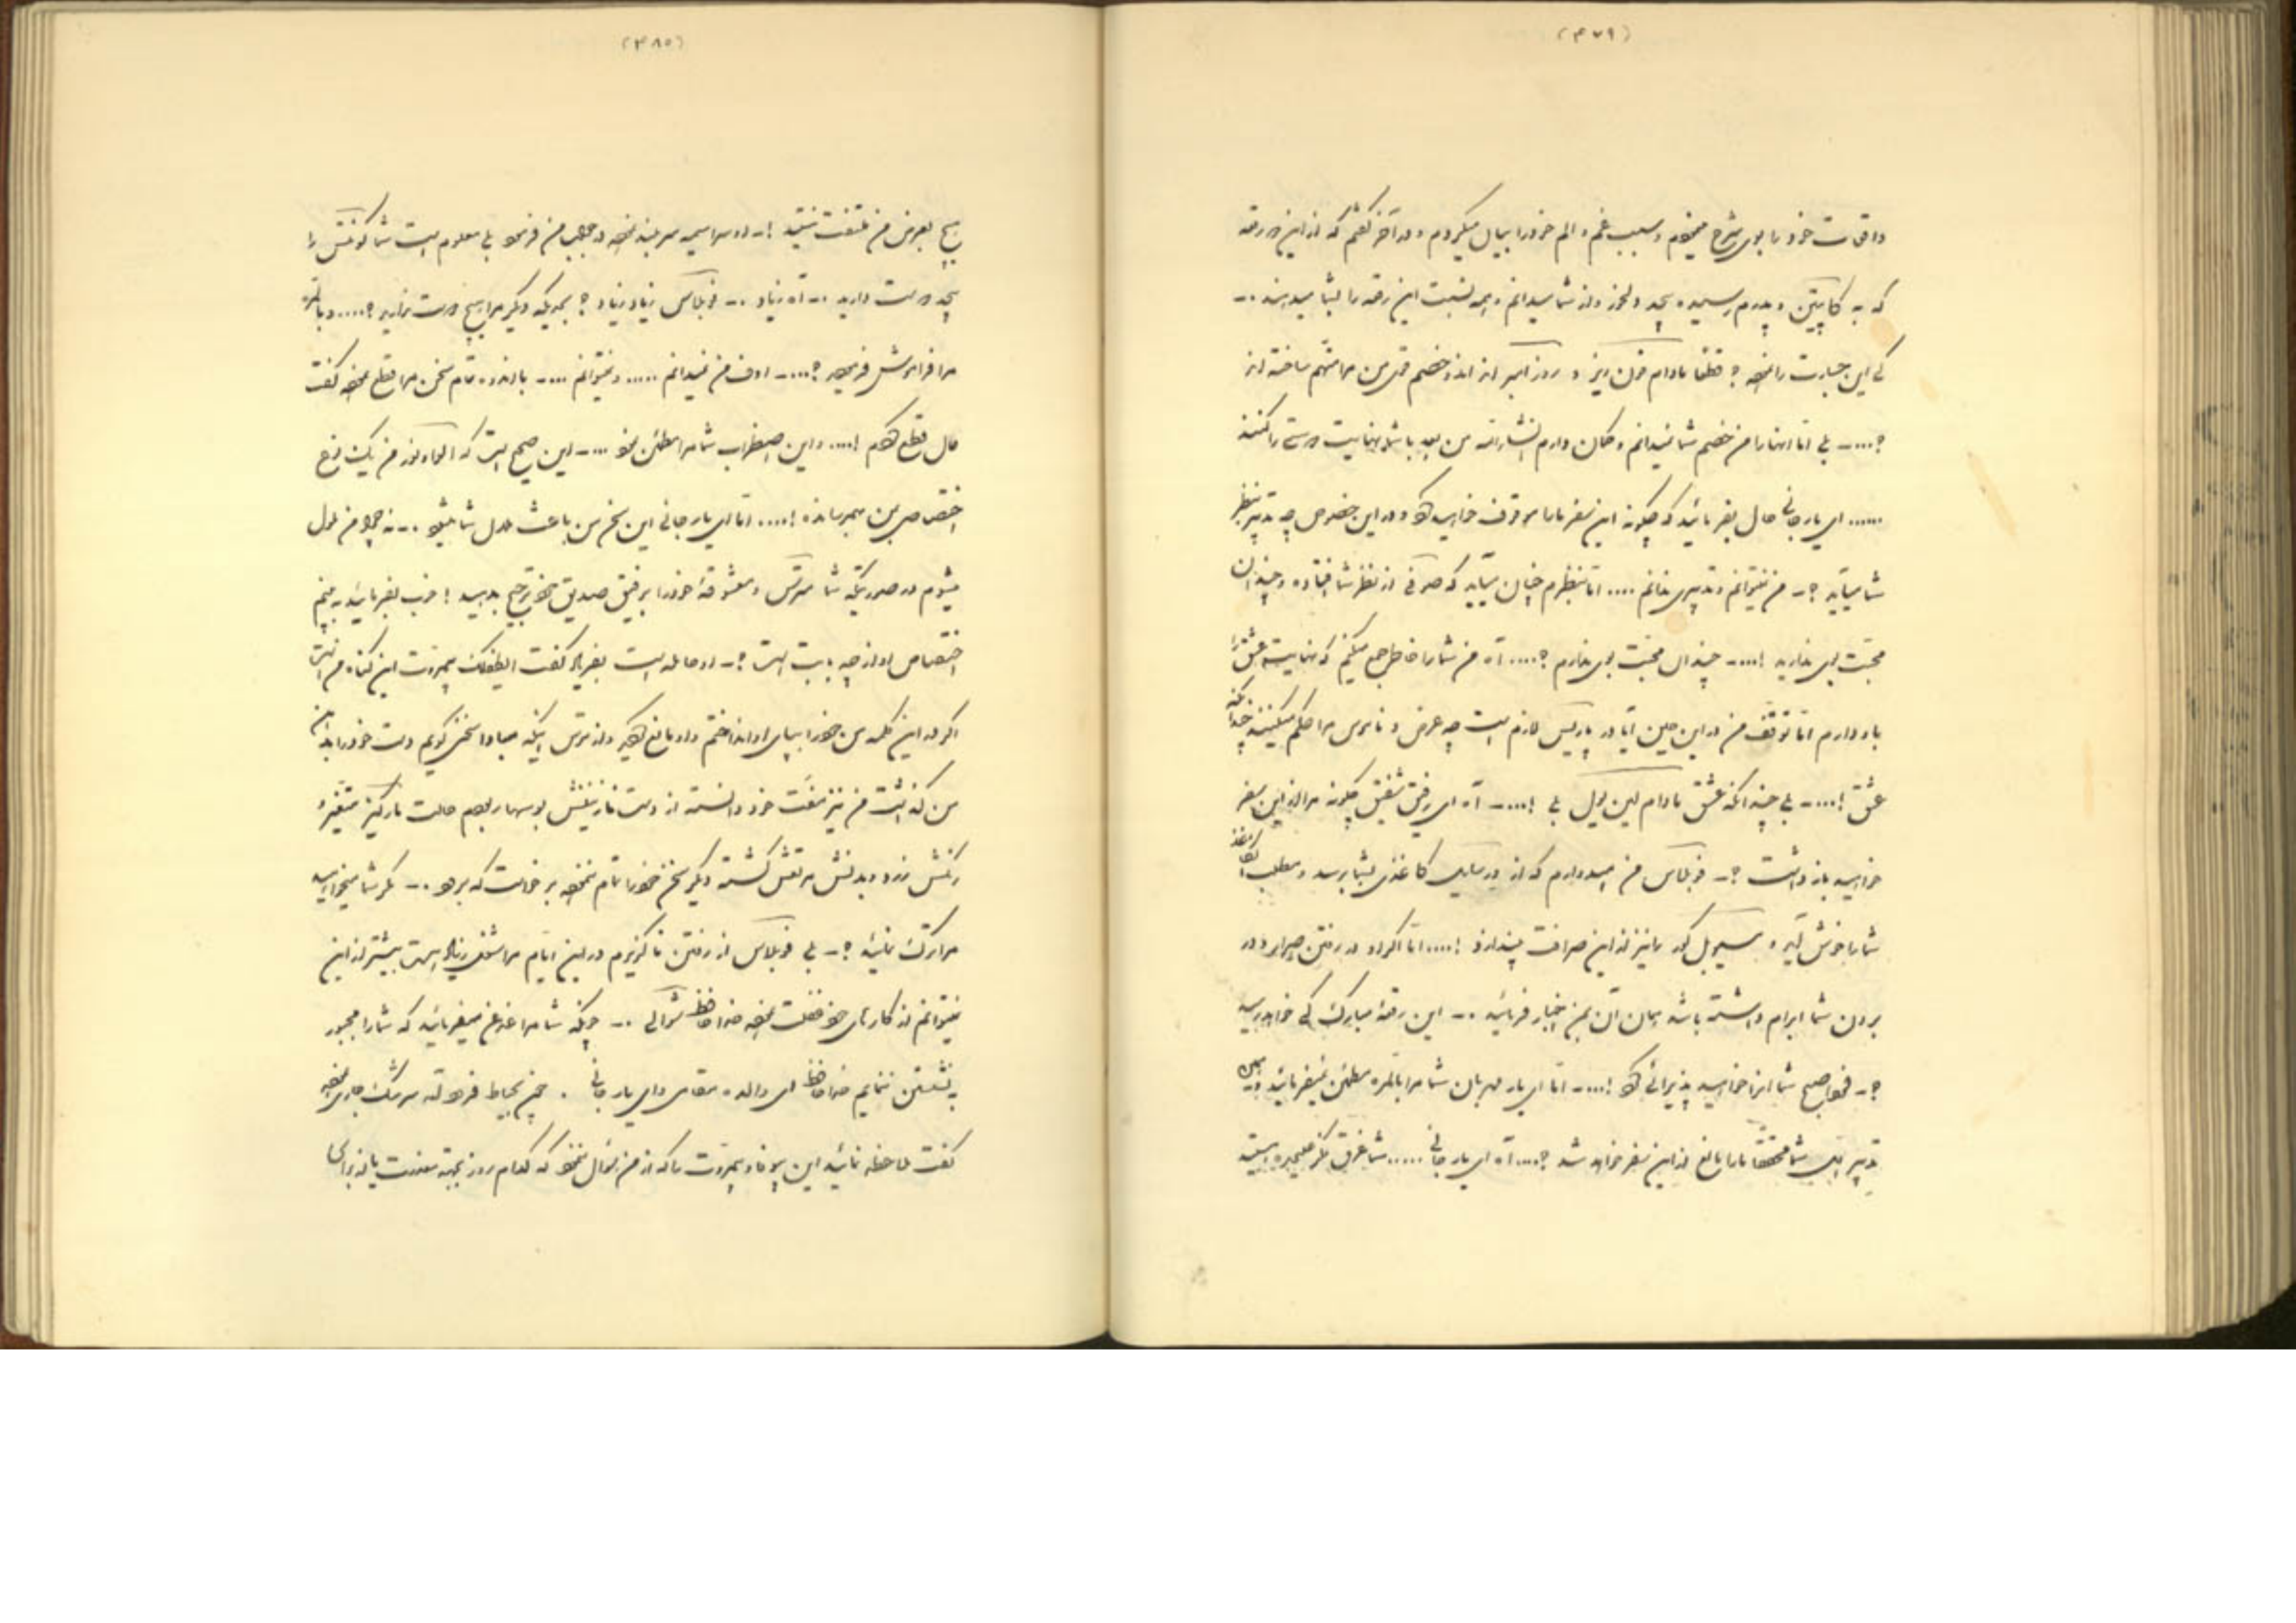 (۴۷۹)
واقعات خود را بوی شرح میدادم و سبب غم و الم خود را بیان میکردم و در آخر گفتم که از این دو رقعه
که به کاپیتن و پدرم رسیده بیحد دلخور و از شما میدانم و همه نسبت این رقعه را بشما میدهند ..
کی این جسارت را نموده ؟ قطعاً مادام فون ریز و روز آمبر از اندو خصم قوی من مرا متهم ساخته اند
؟....ـ بلی اما آنها را من خصم شما نمیدانم و گمان دارم انشاءالله من بعد با شما نهایت دوستی را کنند
...... ای یار جانی حال بفرمائید که چگونه این سفر ما را موقوف خواهید کرد و در این خصوص چه تدبیر بنظر
شما میآید ؟ـ من نمیتوانم تدبیری بدانم .... اما بنظرم چنان میآید که صوفی از نظر شما افتاده و چندان
محبت بوی ندارید !....ـ چندان محبت بوی ندارم ؟.... آه من شما را خاطر جمع میکنم که نهایت عشق را
باو دارم اما توقف من در این حین آیا در پاریس لازم است چه عرض و ناموس مرا حکم میکنند چندانکه
عشق !....ـ بلی چندانکه عشق مادام لین یول بلی !....ـ آه ای رفیق شفیق چگونه مرا از این سفر
خواهید باز داشت ؟ـ فوبلاس من امیدوارم که از ورسایل کاغذی بشما برسد و مطلب آن کاغذ
شما را خوش آید و مسیو بل کور را نیز از این صرافت بیندازد !.... اما اگر او در رفتن اصرار و در
بردن شما ابرام داشته باشد همان آن بمن اخبار فرمائید .. این رقعه مبارک کی خواهد رسید
؟ـ فردا صبح شما آنرا خواهید پذیرائی کرد !....ـ اما ای یار مهربان شما مرا بالمره مطمئن نمیفرمائید و همین
تدبیر شما محققاً ما را مانع از این سفر خواهد شد ؟.... آه ای یار جانی ..... شما غرق فکر علیحده هستید
(۴۸۰)
هیچ بعرض من ملتفت نیستید !ـ او سراسیمه سر بلند نموده در جواب من فرمود بلی معلوم است شما کونتس را
بیحد دوست دارید .. آه زیاد .. فوبلاس زیاد زیاد ؟ بحدیکه دیگر مرا هیچ دوست ندارید ؟.... و بالمره
مرا فراموش فرموده ؟....ـ اوف من نمیدانم ..... و نمیتوانم ....ـ با اندوه تمام سخن مرا قطع نموده گفت
حال قطع کردم !.... و این اضطراب شما مرا مطمئن نمود ....ـ این صحیح است که الودوکور من یک نوع
اختصاصی بمن بهم رسانده !.... اما ای یار جانی این سخن من باعث ملال شما نشود .. نه چرا من ملول
میشوم در صورتیکه شما مترس و معشوقه خود را بر رفیق صدیق خود ترجیح بدهید ! خوب بفرمائید به بینم
اختصاص او از چه بابت است ؟ـ او حامله است بفریاد گفت ای طفلک بیمروت این گناه من است
اگر در این کلمه من خود را بپای او انداختم و او مانع گردید و از ترس اینکه مبادا سخنی گویم دست خود را بدهن
من گذاشت من نیز غنیمت خود دانسته از دست نازنینش بوسها ربودم حالت مارکیز متغیر و
رنگش زرد و بدنش مرتعش گشته دیگر سخن خود را تمام ننموده برخواست که برود .. مگر شما میخواهید
مرا ترک نمائید ؟ـ بلی فوبلاس از رفتن ناگزیرم در این ایام مرا شغل زیاد هست بیشتر از این
نمیتوانم از کارهای خود غفلت نموده خداحافظ شوالی .. چونکه شما مرا قدغن میفرمائید که شما را مجبور
به نشستن ننمایم خداحافظ ای والده مقامی و ای یار جانی . چون بحیاط فرود آمد سرشک جاری نموده
گفت ملاحظه نمائید این بیوفا و بیمروت را که از من سؤال ننمود که کدام روز بجهة معذرت یا از برای